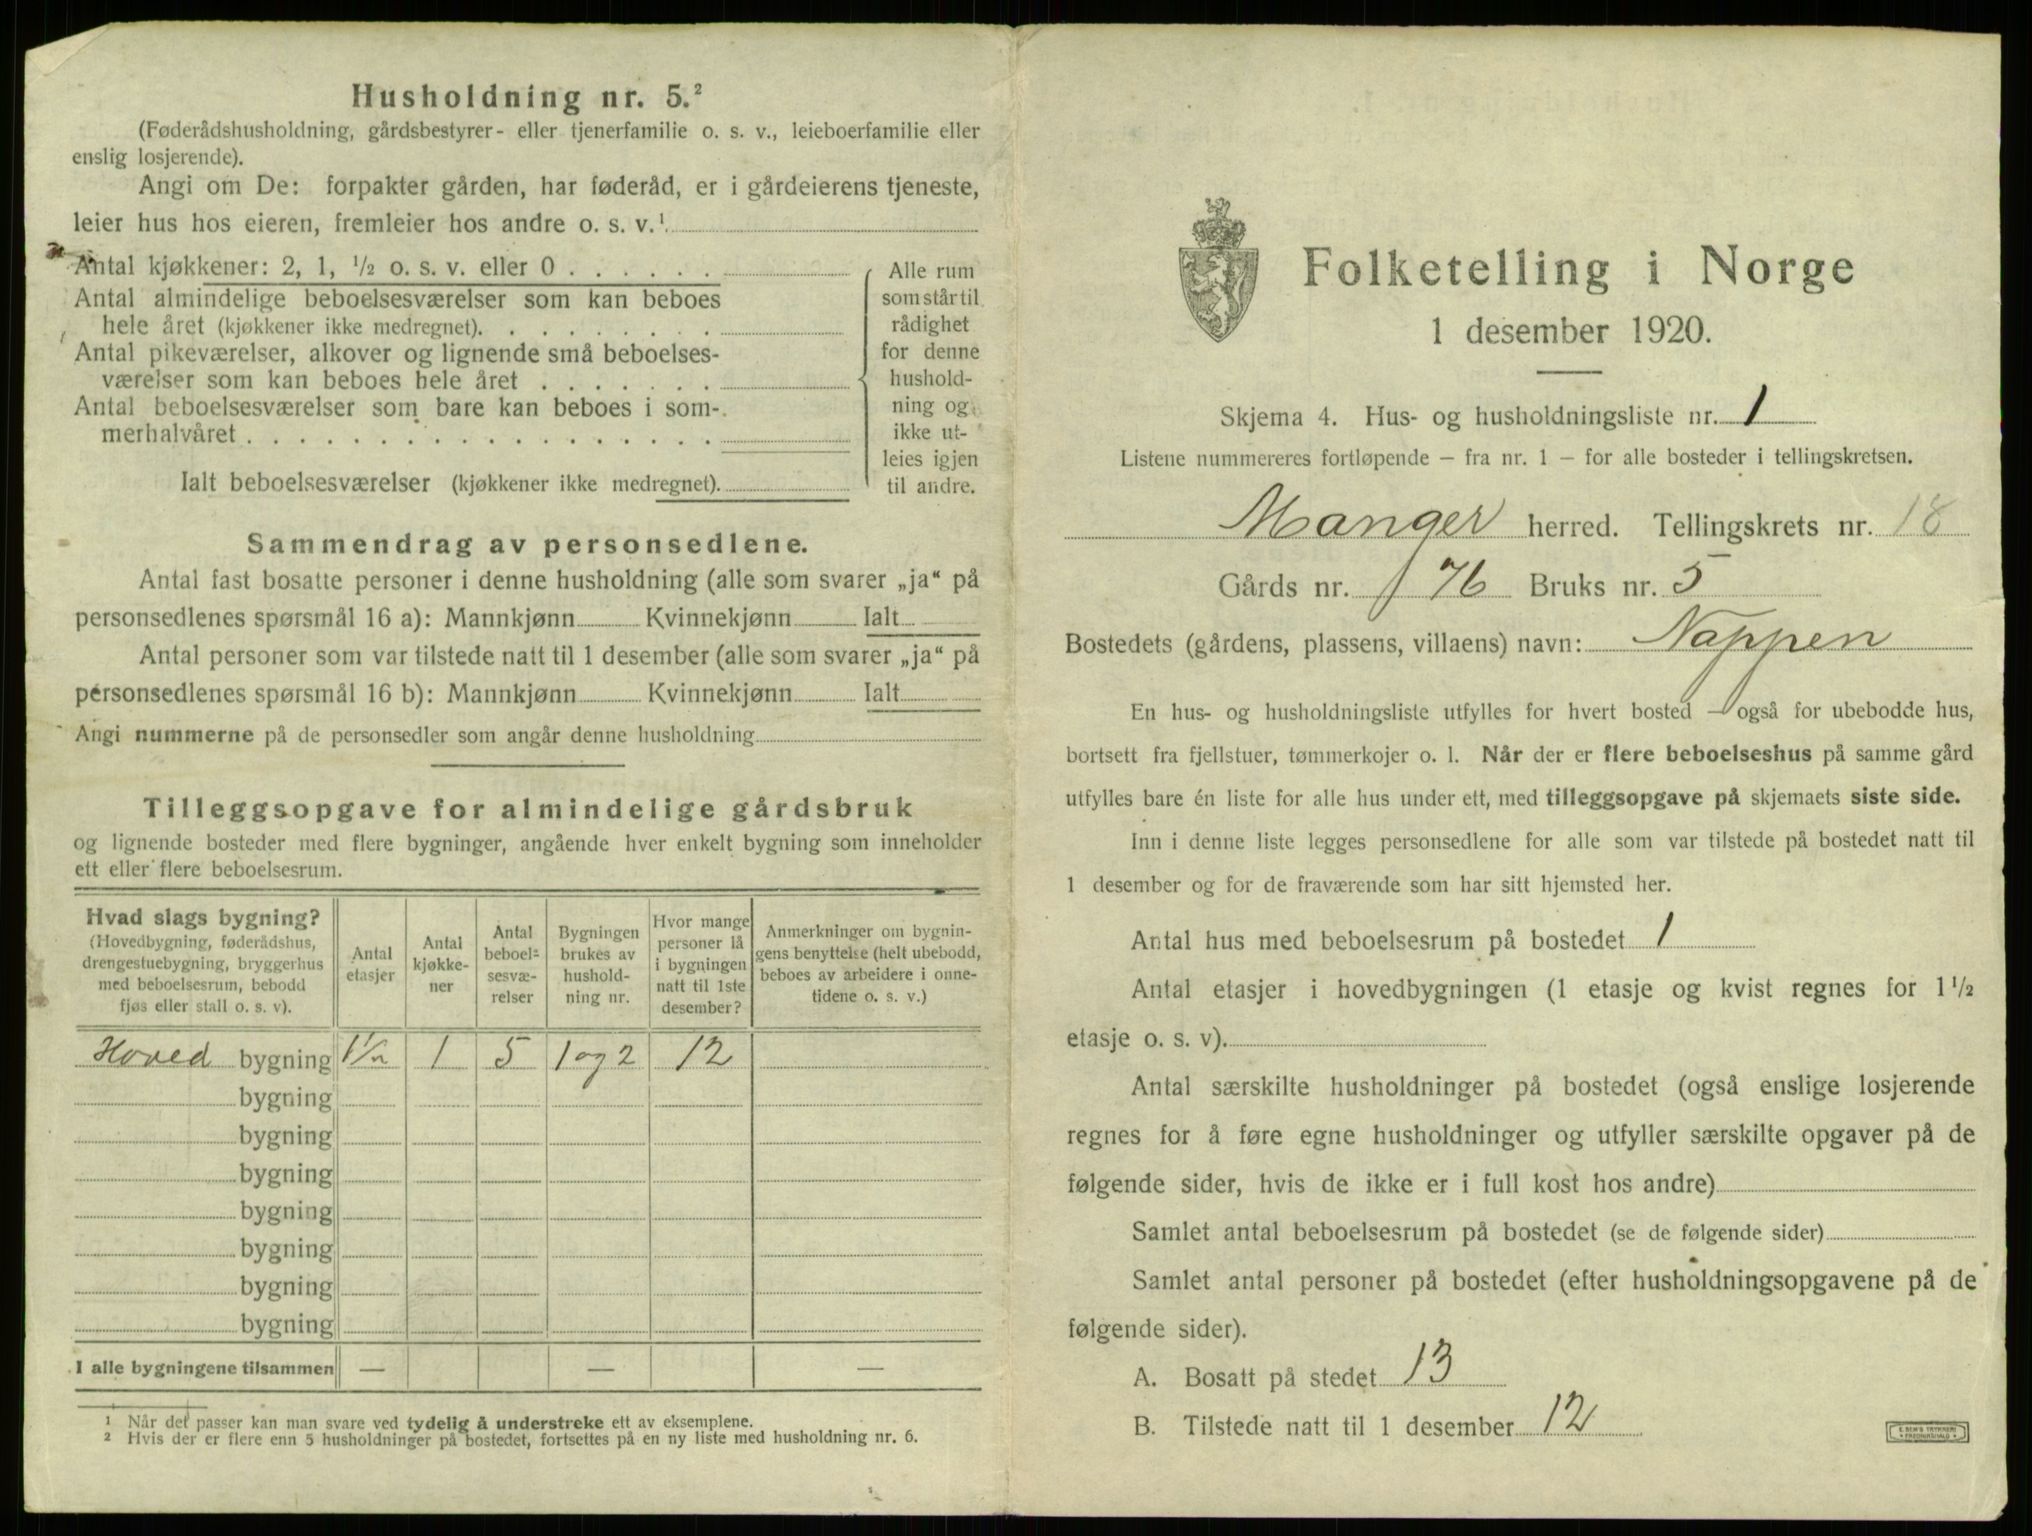 Husholdning nr. 5.²
(Føderådshusholdning, gårdsbestyrer- eller tjenerfamilie o. s. v., leieboerfamilie eller
enslig losjerende).
Angi om De: forpakter gården, har føderåd, er i gårdeierens tjeneste,
leier hus hos eieren, fremleier hos andre o. s. v.¹
Antal kjøkkener: 2, 1, ½ o. s. v. eller 0 . . . . . .
Antal almindelige beboelsesværelser som kan beboes
hele året (kjøkkener ikke medregnet). . . . . . . . .
Antal pikeværelser, alkover og lignende små beboelses-
værelser som kan beboes hele året . . . . . . .
Antal beboelsesværelser som bare kan beboes i som-
merhalvåret . . . . . . . . . . . . . . . . . .
Alle rum
som står til
rådighet
for denne
hushold-
ning og
ikke ut-
leies igjen
til andre.
Ialt beboelsesværelser (kjøkkener ikke medregnet).
Sammendrag av personsedlene.
Antal fast bosatte personer i denne husholdning (alle som svarer „ja“ på
personsedlenes spørsmål 16 a): Mannkjønn Kvinnekjønn Ialt
Antal personer som var tilstede natt til 1 desember (alle som svarer „ja“ på
personsedlenes spørsmål 16 b): Mannkjønn Kvinnekjønn Ialt
Angi nummerne på de personsedler som angår denne husholdning
Tilleggsopgave for almindelige gårdsbruk
og lignende bosteder med flere bygninger, angående hver enkelt bygning som inneholder
ett eller flere beboelsesrum.
Hvad slags bygning?
(Hovedbygning, føderådshus,
drengestuebygning, bryggerhus
med beboelsesrum, bebodd
fjøs eller stall o. s. v).
Antal
etasjer
Antal
kjøkke-
ner
Antal
beboel-
sesvæ-
relser
Bygningen
brukes av
hushold-
ning nr.
Hvor mange
personer lå
i bygningen
natt til 1ste
desember?
Anmerkninger om bygnin-
gens benyttelse (helt ubebodd,
beboes av arbeidere i onne-
tidene o. s. v.)
Hoved bygning 1½ 1 5 1 og 2 12
bygning
bygning
bygning
bygning
bygning
bygning
bygning
I alle bygningene tilsammen — — —
¹ Når det passer kan man svare ved tydelig å understreke ett av eksemplene.
² Hvis der er flere enn 5 husholdninger på bostedet, fortsettes på en ny liste med husholdning nr. 6.
Folketelling i Norge
1 desember 1920.
Skjema 4. Hus- og husholdningsliste nr. 1
Listene nummereres fortløpende — fra nr. 1 — for alle bosteder i tellingskretsen.
Manger herred. Tellingskrets nr. 18
Gårds nr. 76 Bruks nr. 5
Bostedets (gårdens, plassens, villaens) navn: Nappen
En hus- og husholdningsliste utfylles for hvert bosted — også for ubebodde hus,
bortsett fra fjellstuer, tømmerkojer o. l. Når der er flere beboelseshus på samme gård
utfylles bare én liste for alle hus under ett, med tilleggsopgave på skjemaets siste side.
Inn i denne liste legges personsedlene for alle som var tilstede på bostedet natt til
1 desember og for de fraværende som har sitt hjemsted her.
Antal hus med beboelsesrum på bostedet 1
Antal etasjer i hovedbygningen (1 etasje og kvist regnes for 1½
etasje o. s. v).
Antal særskilte husholdninger på bostedet (også enslige losjerende
regnes for å føre egne husholdninger og utfyller særskilte opgaver på de
følgende sider, hvis de ikke er i full kost hos andre)
Samlet antal beboelsesrum på bostedet (se de følgende sider)
Samlet antal personer på bostedet (efter husholdningsopgavene på de
følgende sider).
A. Bosatt på stedet 13
B. Tilstede natt til 1 desember 12
E. SEM'S TRYKKERI
FREDRIKSHALD